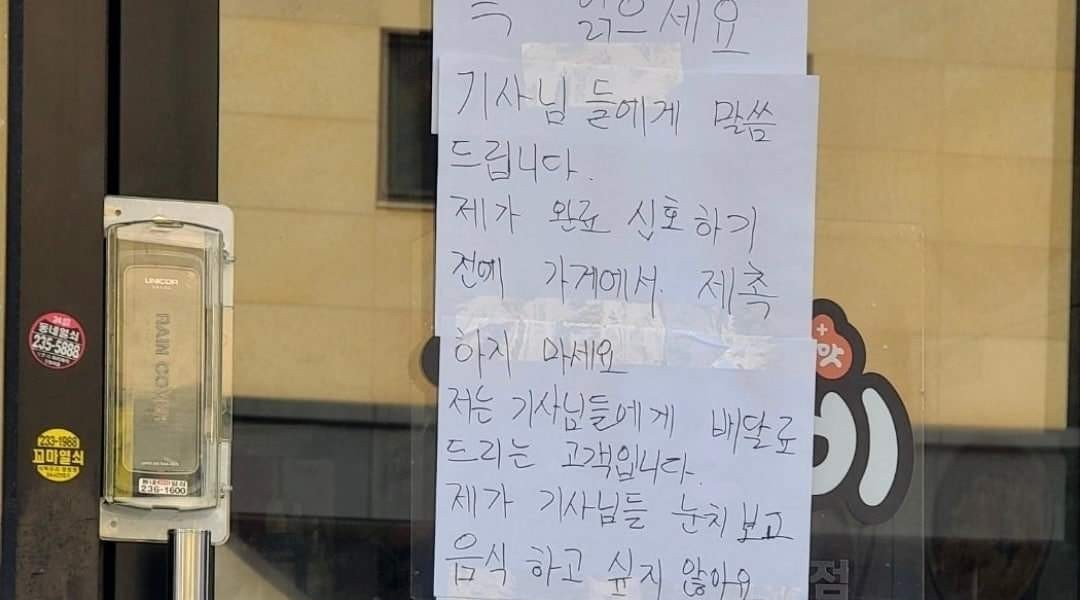 꼭 읽으세요
기사님들에게 말씀
드립니다.
제가 완료 신호하기
전에 가게에서 제촉
하지 마세요
저는 기사님들에게 배달료
드리는 고객입니다.
제가 기사님들 눈치보고
음식 하고 싶지 않아요
UNICOR
RAIN COVER
24시
동네열쇠
235-5888
233-1988
꼬마열쇠
236-1600
약
점